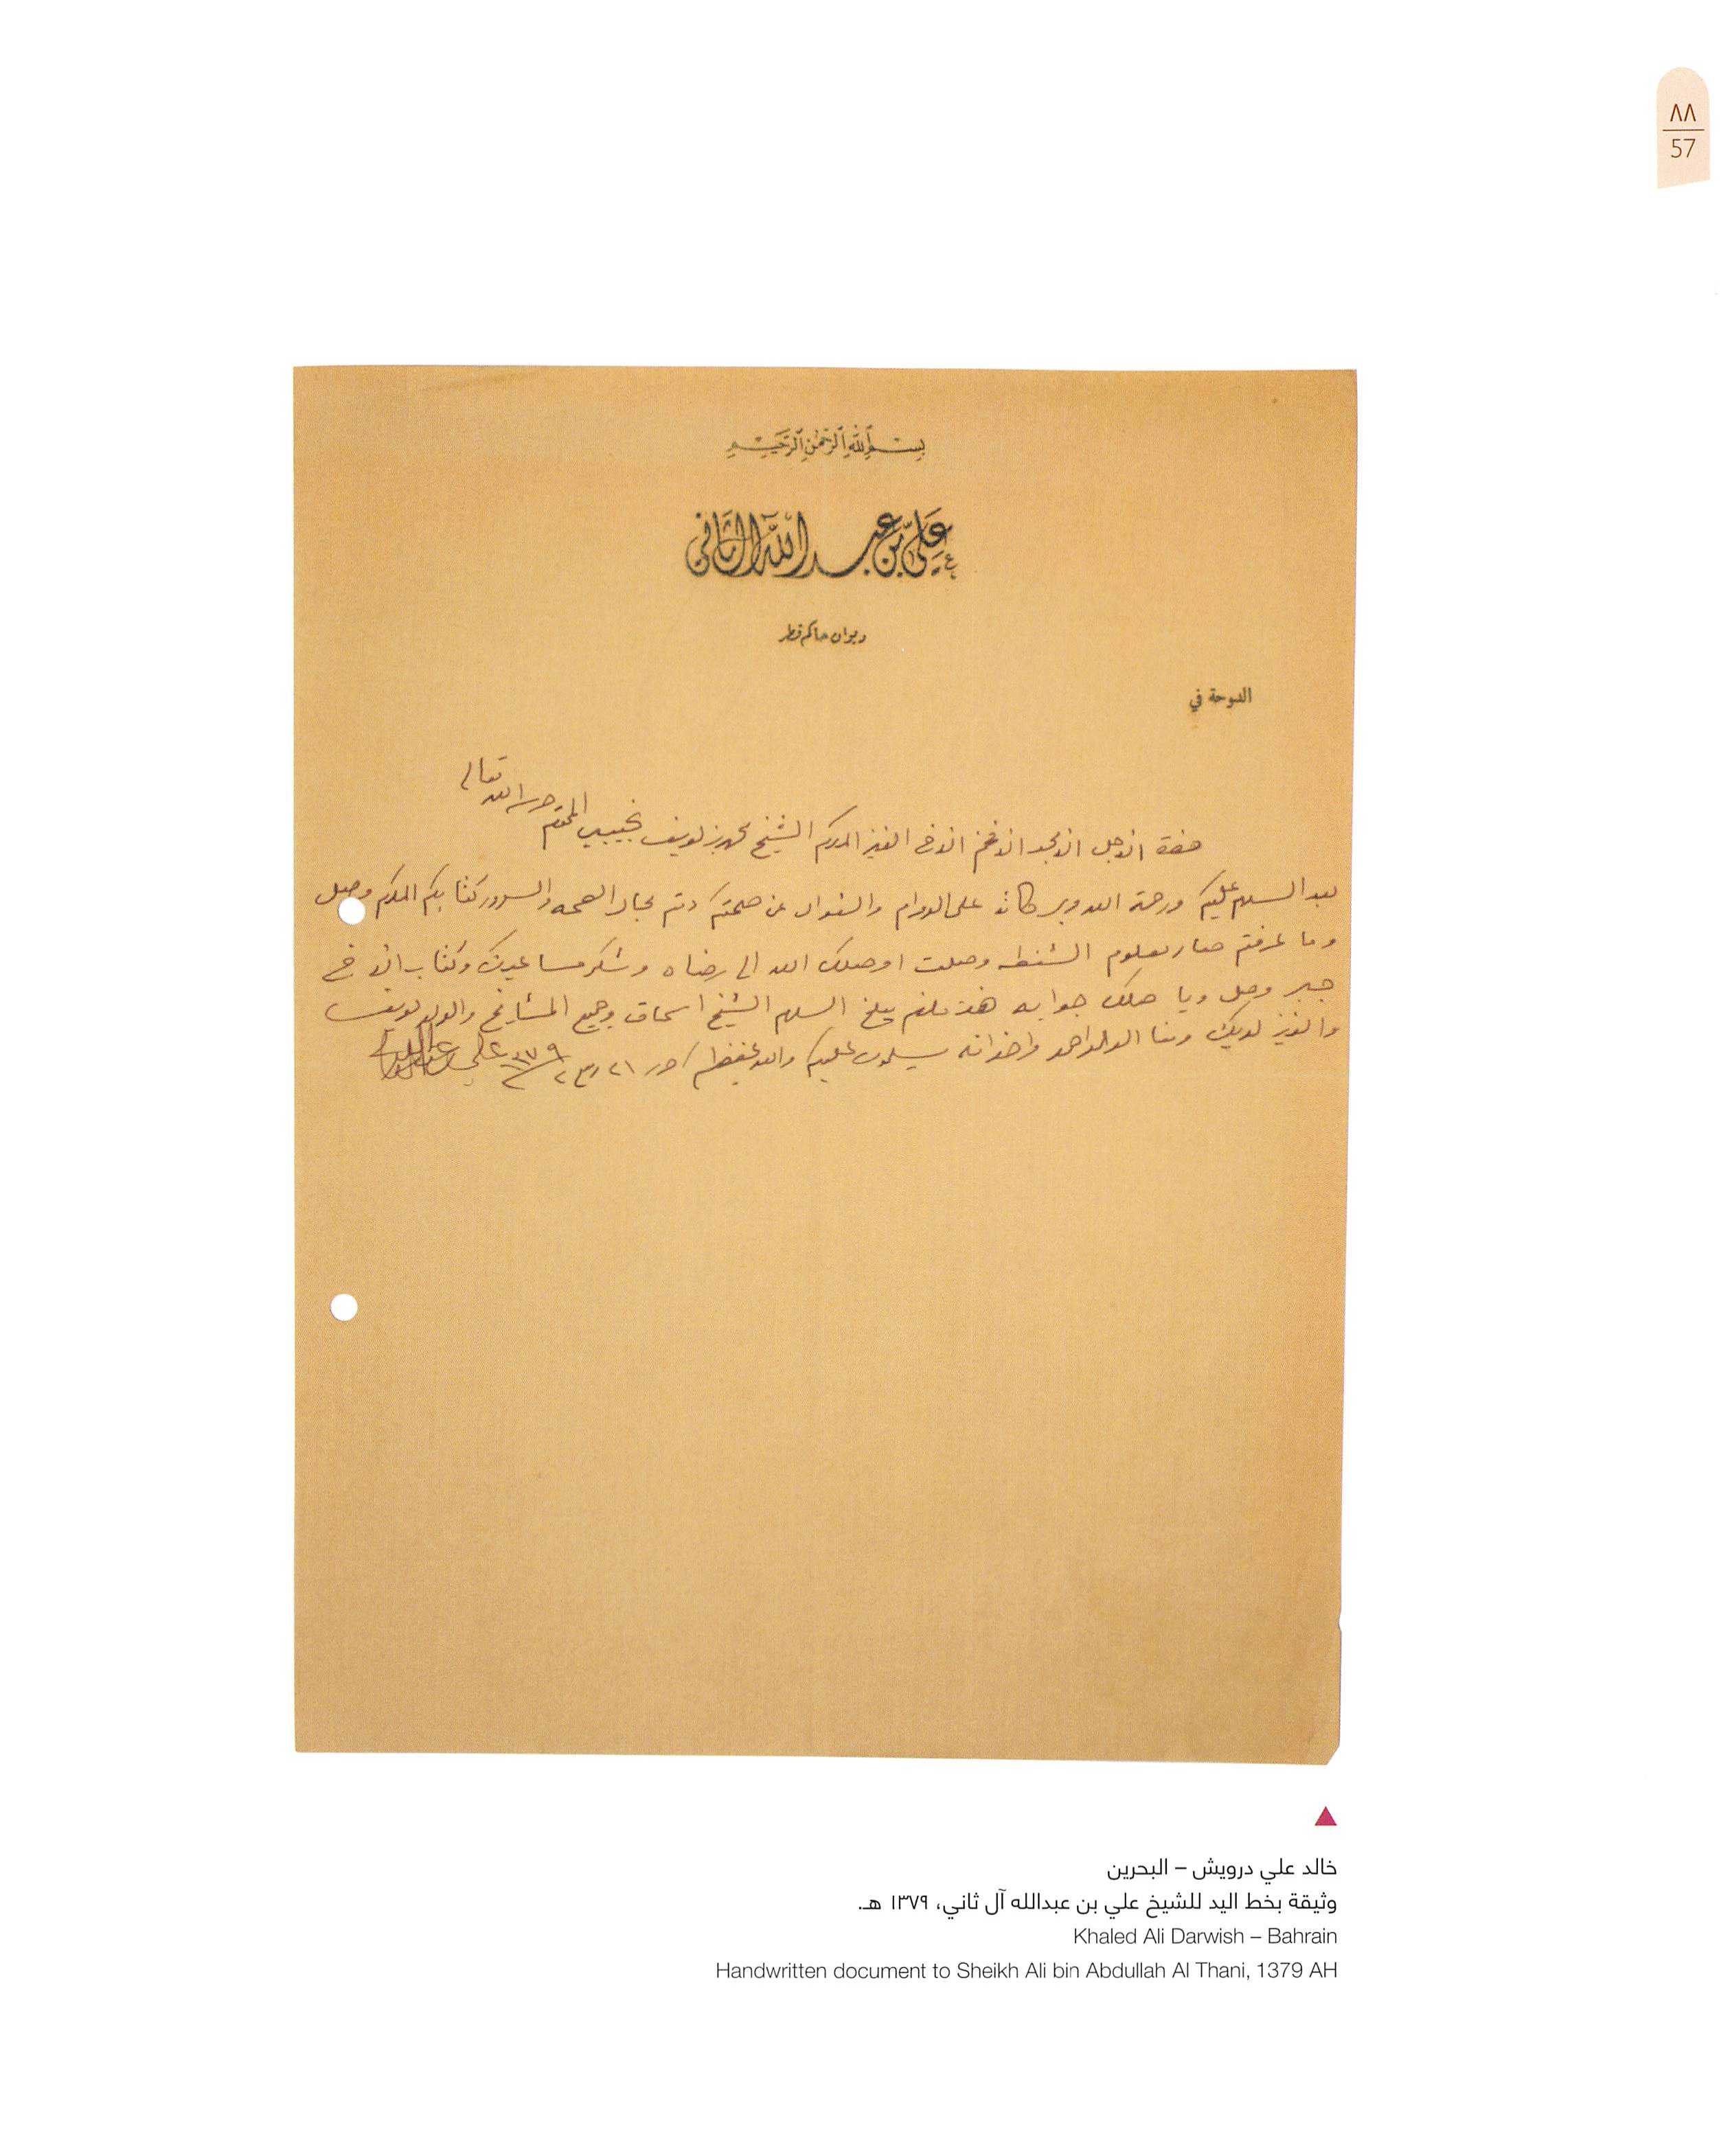 ٨٨
57
بسم الله الرحمن الرحيم
علي بن عبد الله الثاني
ديوان حاكم قطر
الدوحة في
تعالى
حضرة الاجل الامجد الافخم الاخ العزيز المكرم الشيخ يوسف المحترم حرسه الله
بعد السلام عليكم ورحمة الله وبركاته على الدوام والسؤال عن صحتكم دمتم بحال الصحه والسرور كتابكم المكرم وصل
وما عرفتم صار معلوم الشنطه وصلت اوصلك الله الى رضاه وشكر مساعيك وكتاب الاخ
جبر وصل جوابه السلام الشيخ اسحاق وجميع المشايخ والولد يوسف
والعزيز لديك ومنا الولد احمد واخوانه يسلمون عليكم والله يحفظكم حرر ٢١ ١٣٧٩ علي بن عبدالله
خالد علي درويش – البحرين
وثيقة بخط اليد للشيخ علي بن عبدالله آل ثاني، ١٣٧٩ هـ.
Khaled Ali Darwish – Bahrain
Handwritten document to Sheikh Ali bin Abdullah Al Thani, 1379 AH